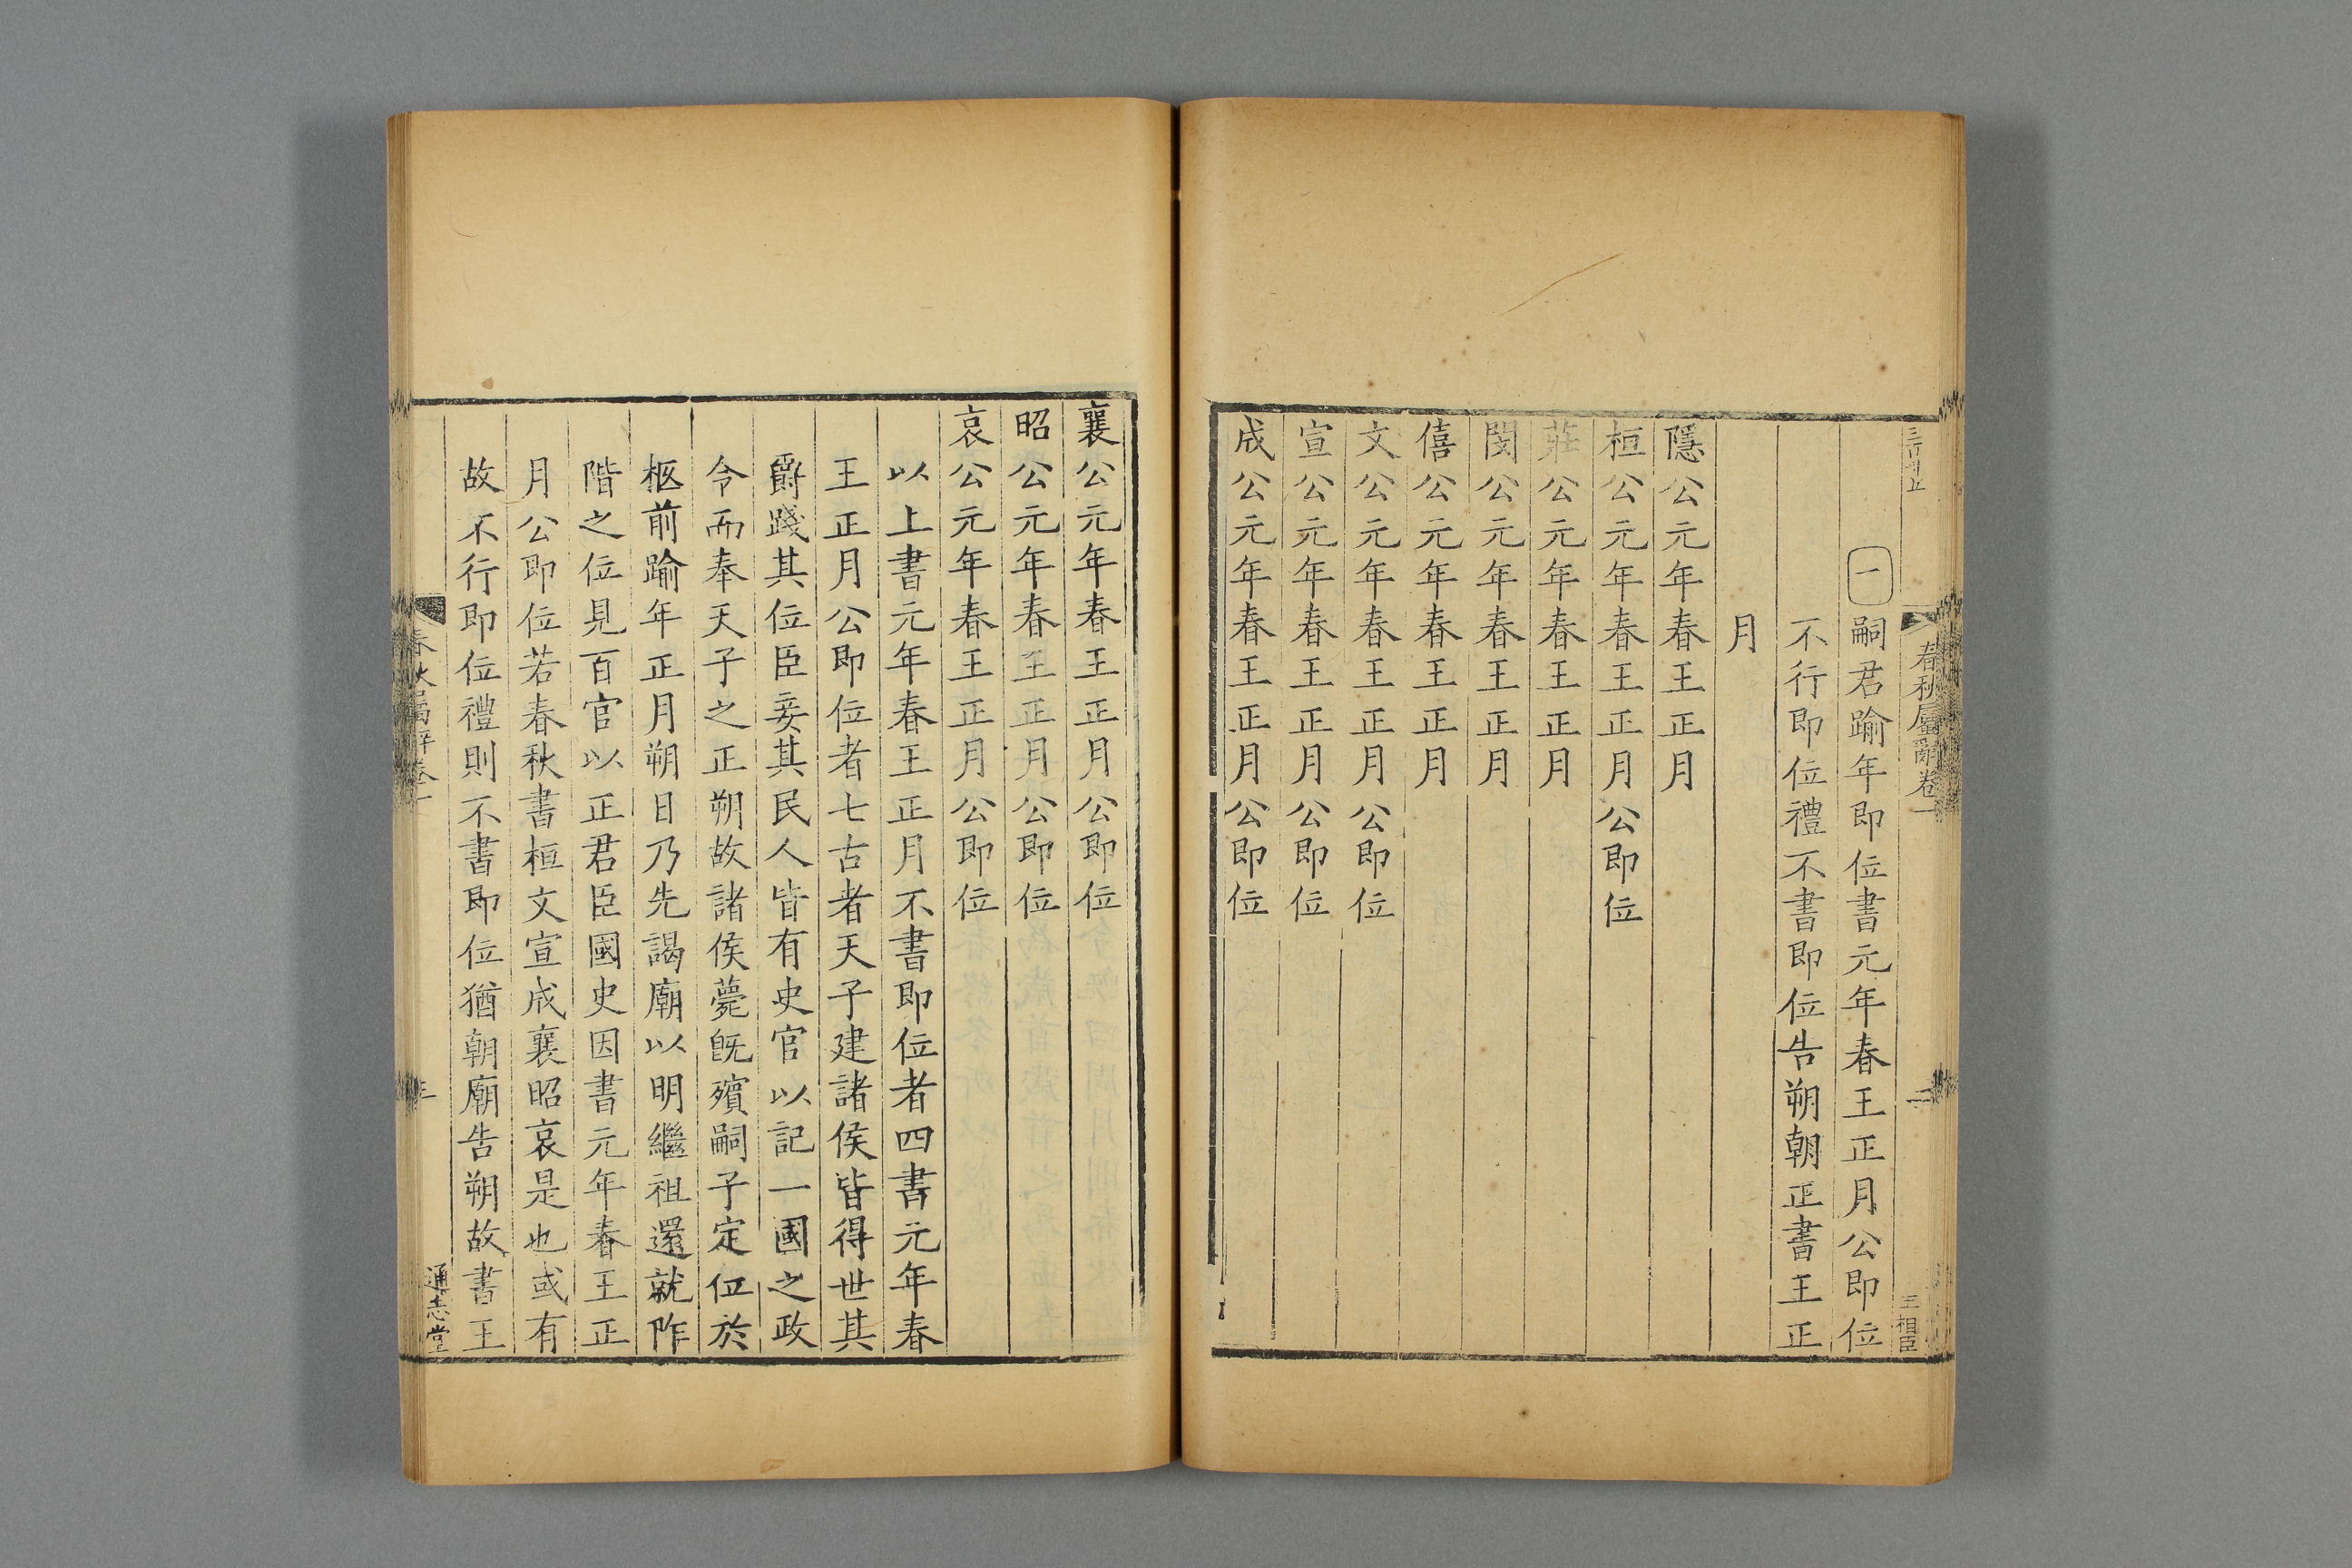 春秋屬辭卷一
二
王相臣
一嗣君踰年即位書元年春王正月公即位
不行即位禮不書即位告朔朝正書王正
月
隱公元年春王正月
桓公元年春王正月公即位
莊公元年春王正月
閔公元年春王正月
僖公元年春王正月
文公元年春王正月公即位
宣公元年春王正月公即位
成公元年春王正月公即位
襄公元年春王正月公即位
昭公元年春王正月公即位
哀公元年春王正月公即位
以上書元年春王正月不書即位者四書元年春
王正月公即位者七古者天子建諸侯皆得世其
爵踐其位臣妾其民人皆有史官以記一國之政
令而奉天子之正朔故諸侯薨旣殯嗣子定位於
柩前踰年正月朔日乃先謁廟以明繼祖還就阼
階之位見百官以正君臣國史因書元年春王正
月公即位若春秋書桓文宣成襄昭哀是也或有
故不行即位禮則不書即位猶朝廟告朔故書王
春秋屬辭卷一
三
通志堂